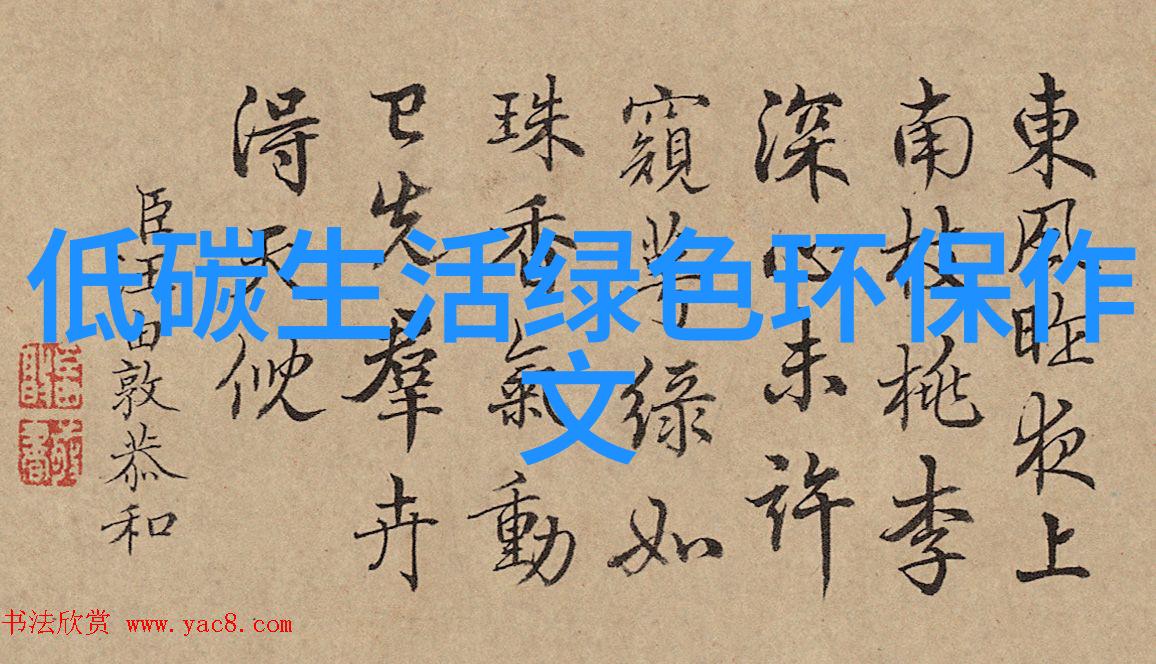 東風昨夜上
南枝桃李
深心未許
窺萼緑如
珠香氣動
已先羣卉
得天倪
臣汪由敦恭和
低碳生活绿色环保作
文
书法欣赏 www.yac8.com